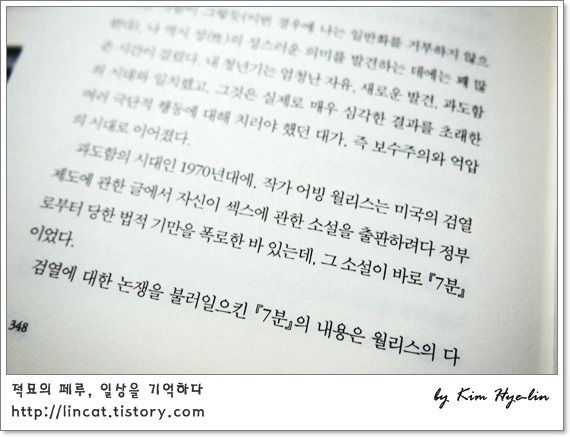 그렇듯(이번 경우에 나는 일반화를 거부하지 않으
련다), 나 역시 성(性)의 성스러운 의미를 발견하는 데에는 꽤 많
은 시간이 걸렸다. 내 청년기는 엄청난 자유, 새로운 발견, 과도함
의 시대와 일치했고, 그것은 실제로 매우 심각한 결과를 초래한
여러 극단적 행동에 대해 치러야 했던 대가, 즉 보수주의와 억압
의 시대로 이어졌다.
과도함의 시대인 1970년대에, 작가 어빙 월리스는 미국의 검열
제도에 관한 글에서 자신이 섹스에 관한 소설을 출판하려다 정부
로부터 당한 법적 기만을 폭로한 바 있는데, 그 소설이 바로 『7분』
이었다.
검열에 대한 논쟁을 불러일으킨 『7분』의 내용은 월리스의 다
348
적묘의 페루, 일상을 기억하다
by Kim Hye-lin
http://lincat.tistory.com